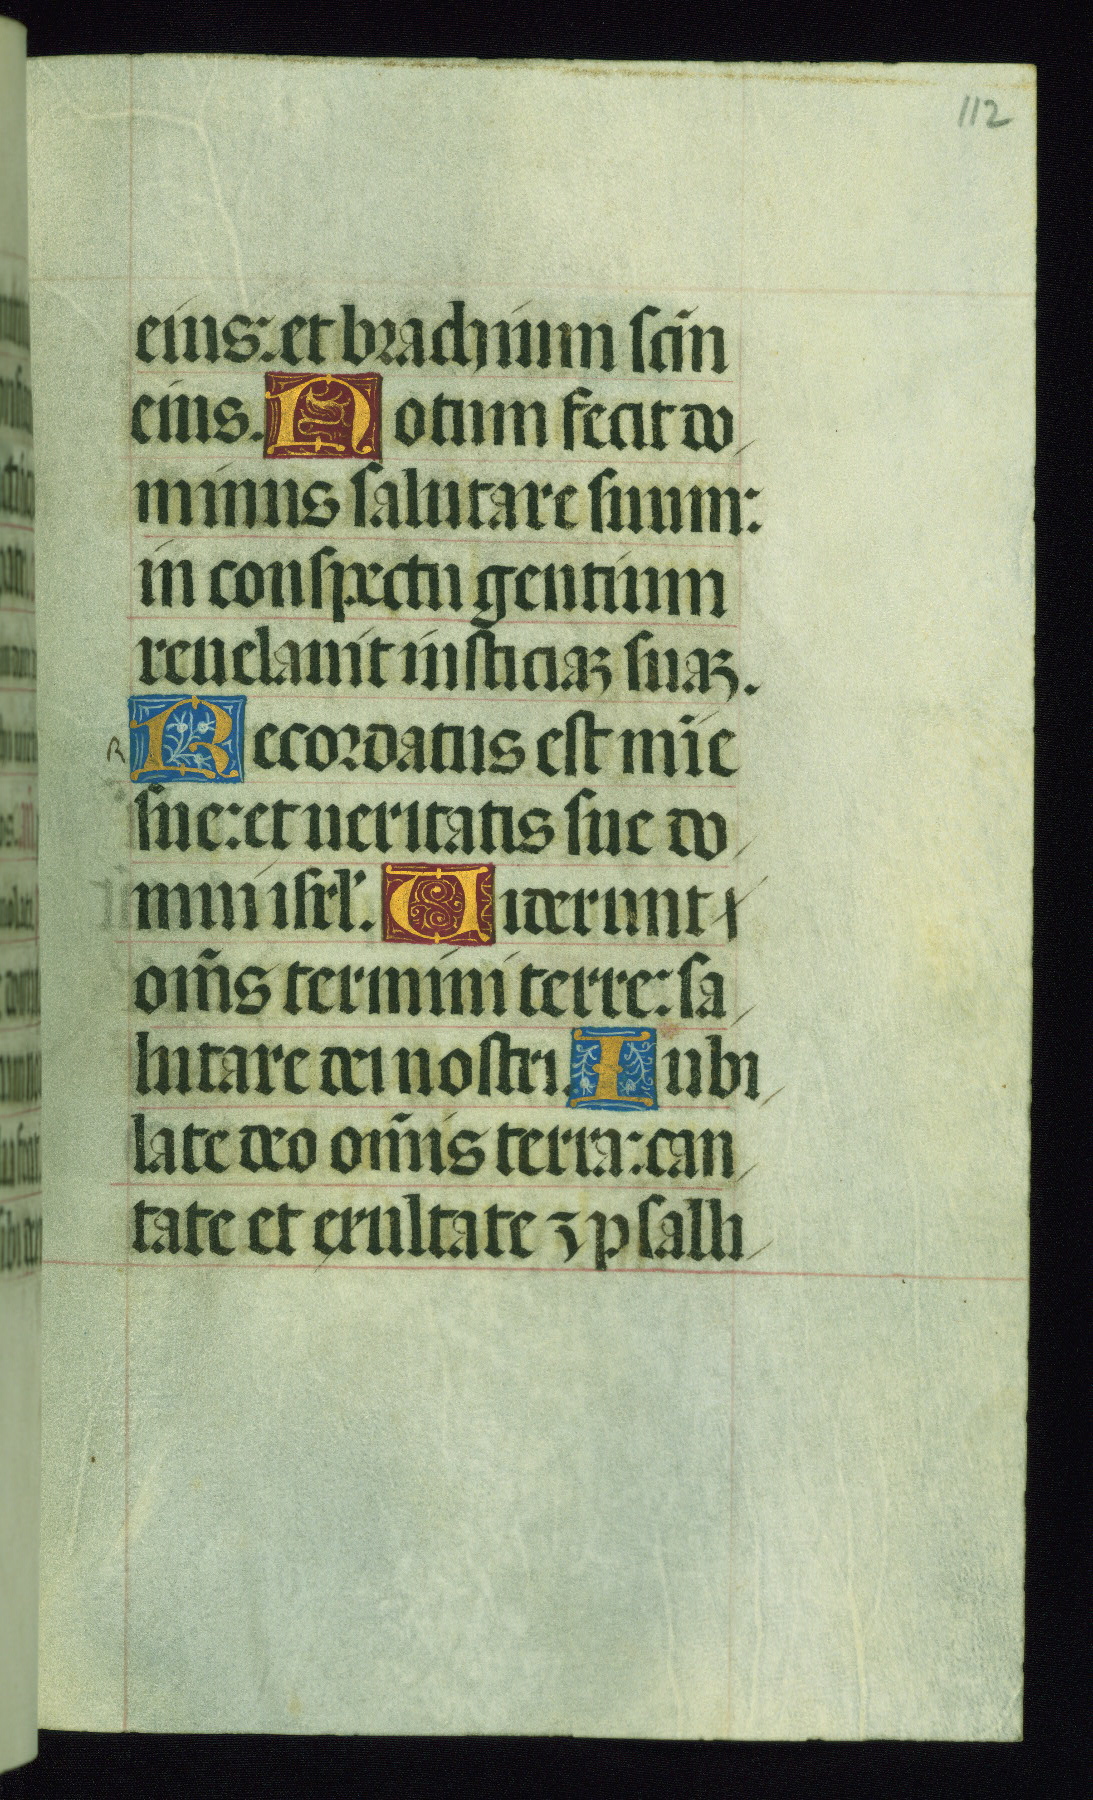 112
eius: et brachium sc̄m
eius. Notum fecit do
minus salutare suum:
in conspectu gentium
reuelauit iusticiaꝫ suaꝫ.
R Recordatus est mīe
sue: et ueritatis sue do
mui isrl'. Uiderunt
om̄s termini terre: sa
lutare dei nostri. Iubi
late deo om̄is terra: can
tate et exultate ⁊ psalli